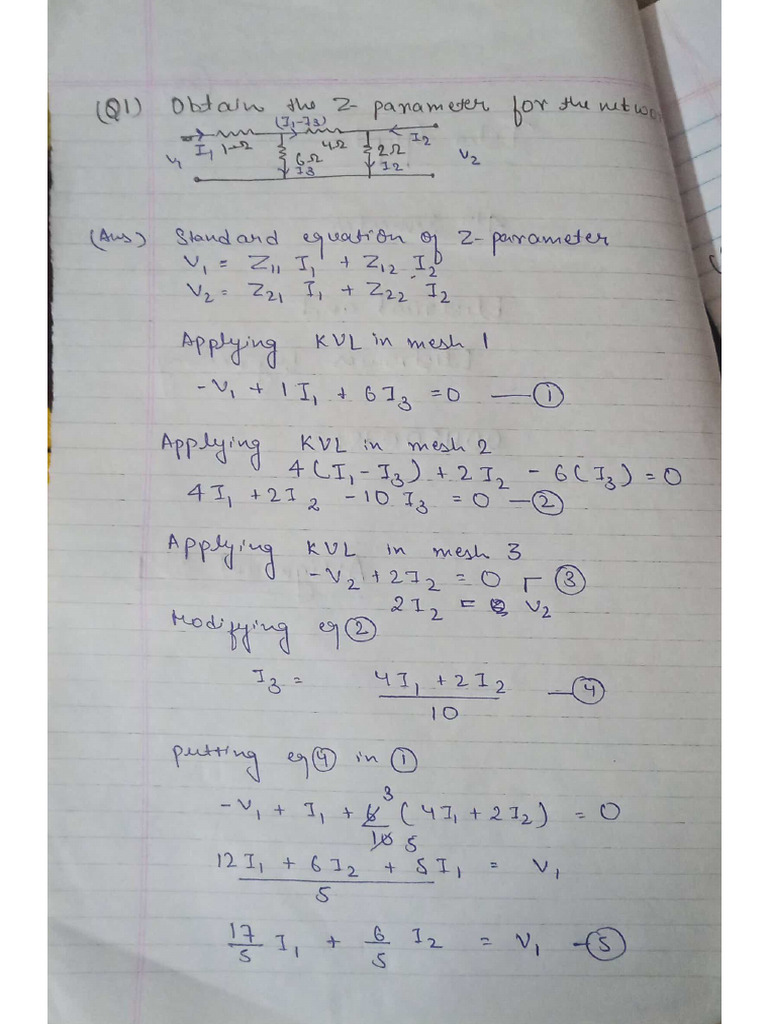 (Q1) Obtain the Z-parameter for the netwo
(I₁-I₃)
I₁ 1Ω 4Ω I₂
V₁ 6Ω 2Ω V₂
I₃ I₂
(Ans) Standard equation of Z-parameter
V₁ = Z₁₁ I₁ + Z₁₂ I₂
V₂ = Z₂₁ I₁ + Z₂₂ I₂
Applying KVL in mesh 1
-V₁ + 1I₁ + 6I₃ = 0 — ①
Applying KVL in mesh 2
4(I₁-I₃) + 2I₂ - 6(I₃) = 0
4I₁ + 2I₂ - 10I₃ = 0 — ②
Applying KVL in mesh 3
-V₂ + 2I₂ = 0 — ③
2I₂ = V₂
Modifying eq ②
I₃ = 4I₁ + 2I₂ — ④
10
putting eq ④ in ①
3
-V₁ + I₁ + 6 (4I₁ + 2I₂) = 0
10 5
12I₁ + 6I₂ + 5I₁ = V₁
5
17/5 I₁ + 6/5 I₂ = V₁ — ⑤